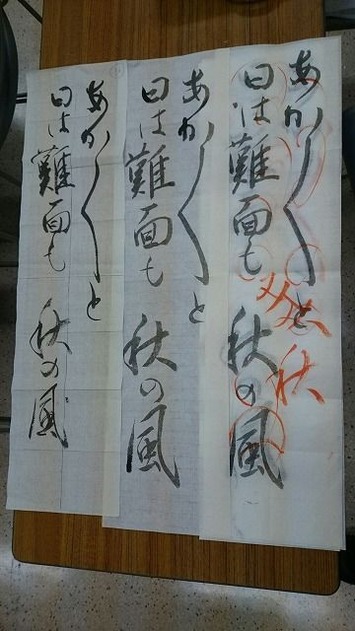 あか〱と
日は難面も 秋の風
あか〱と
日は難面も 秋の風
あか〱と
日は難面も 秋の風
秋